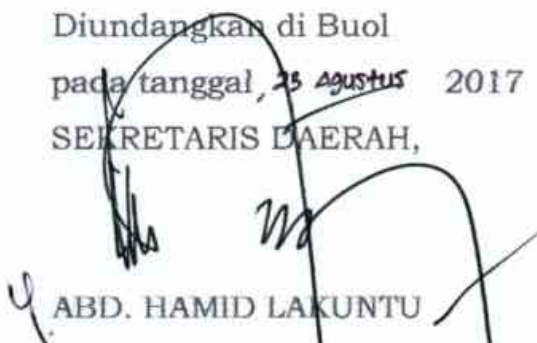 Diundangkan di Buol
pada tanggal, 23 Agustus 2017
SEKRETARIS DAERAH,
ABD. HAMID LAKUNTU